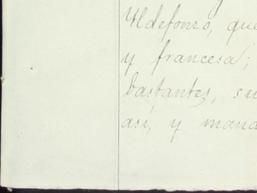 Yldefonso, que
y francesa;
bastantes, su
así, y mand